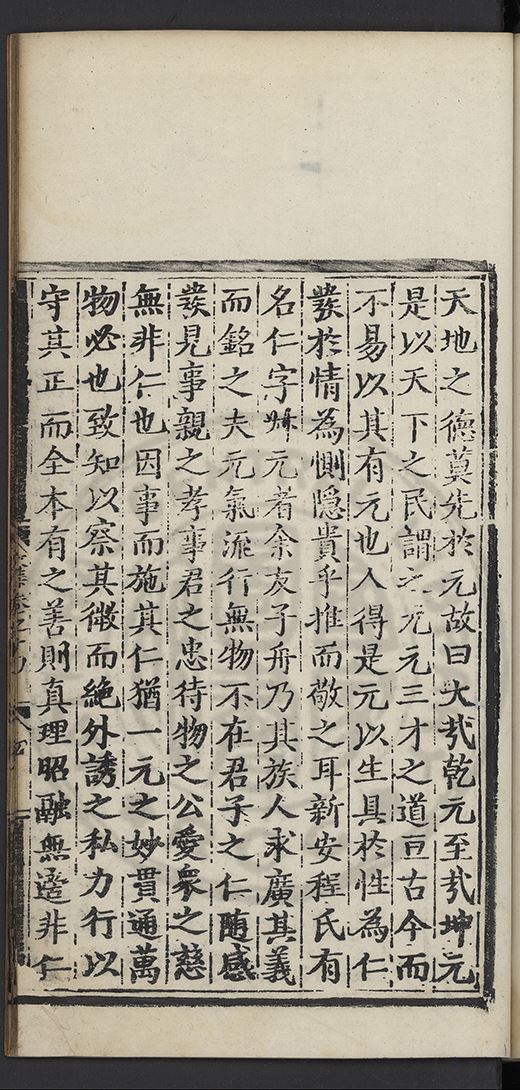 天地之德莫先於元故曰大㢤乾元至㢤坤元
是以天下之民謂之元元三才之道亘古今而
不易以其有元也人得是元以生具於性為仁
發於情為惻隱貴乎推而敬之耳新安程氏有
名仁字歸元者余友子舟乃其族人求廣其義
而銘之夫元氣流行無物不在君子之仁随感
發見事親之孝事君之忠待物之公愛衆之慈
無非仁也因事而施其仁猶一元之妙貫通萬
物必也致知以察其微而絶外誘之私力行以
守其正而全本有之善則真理昭融無邊非仁